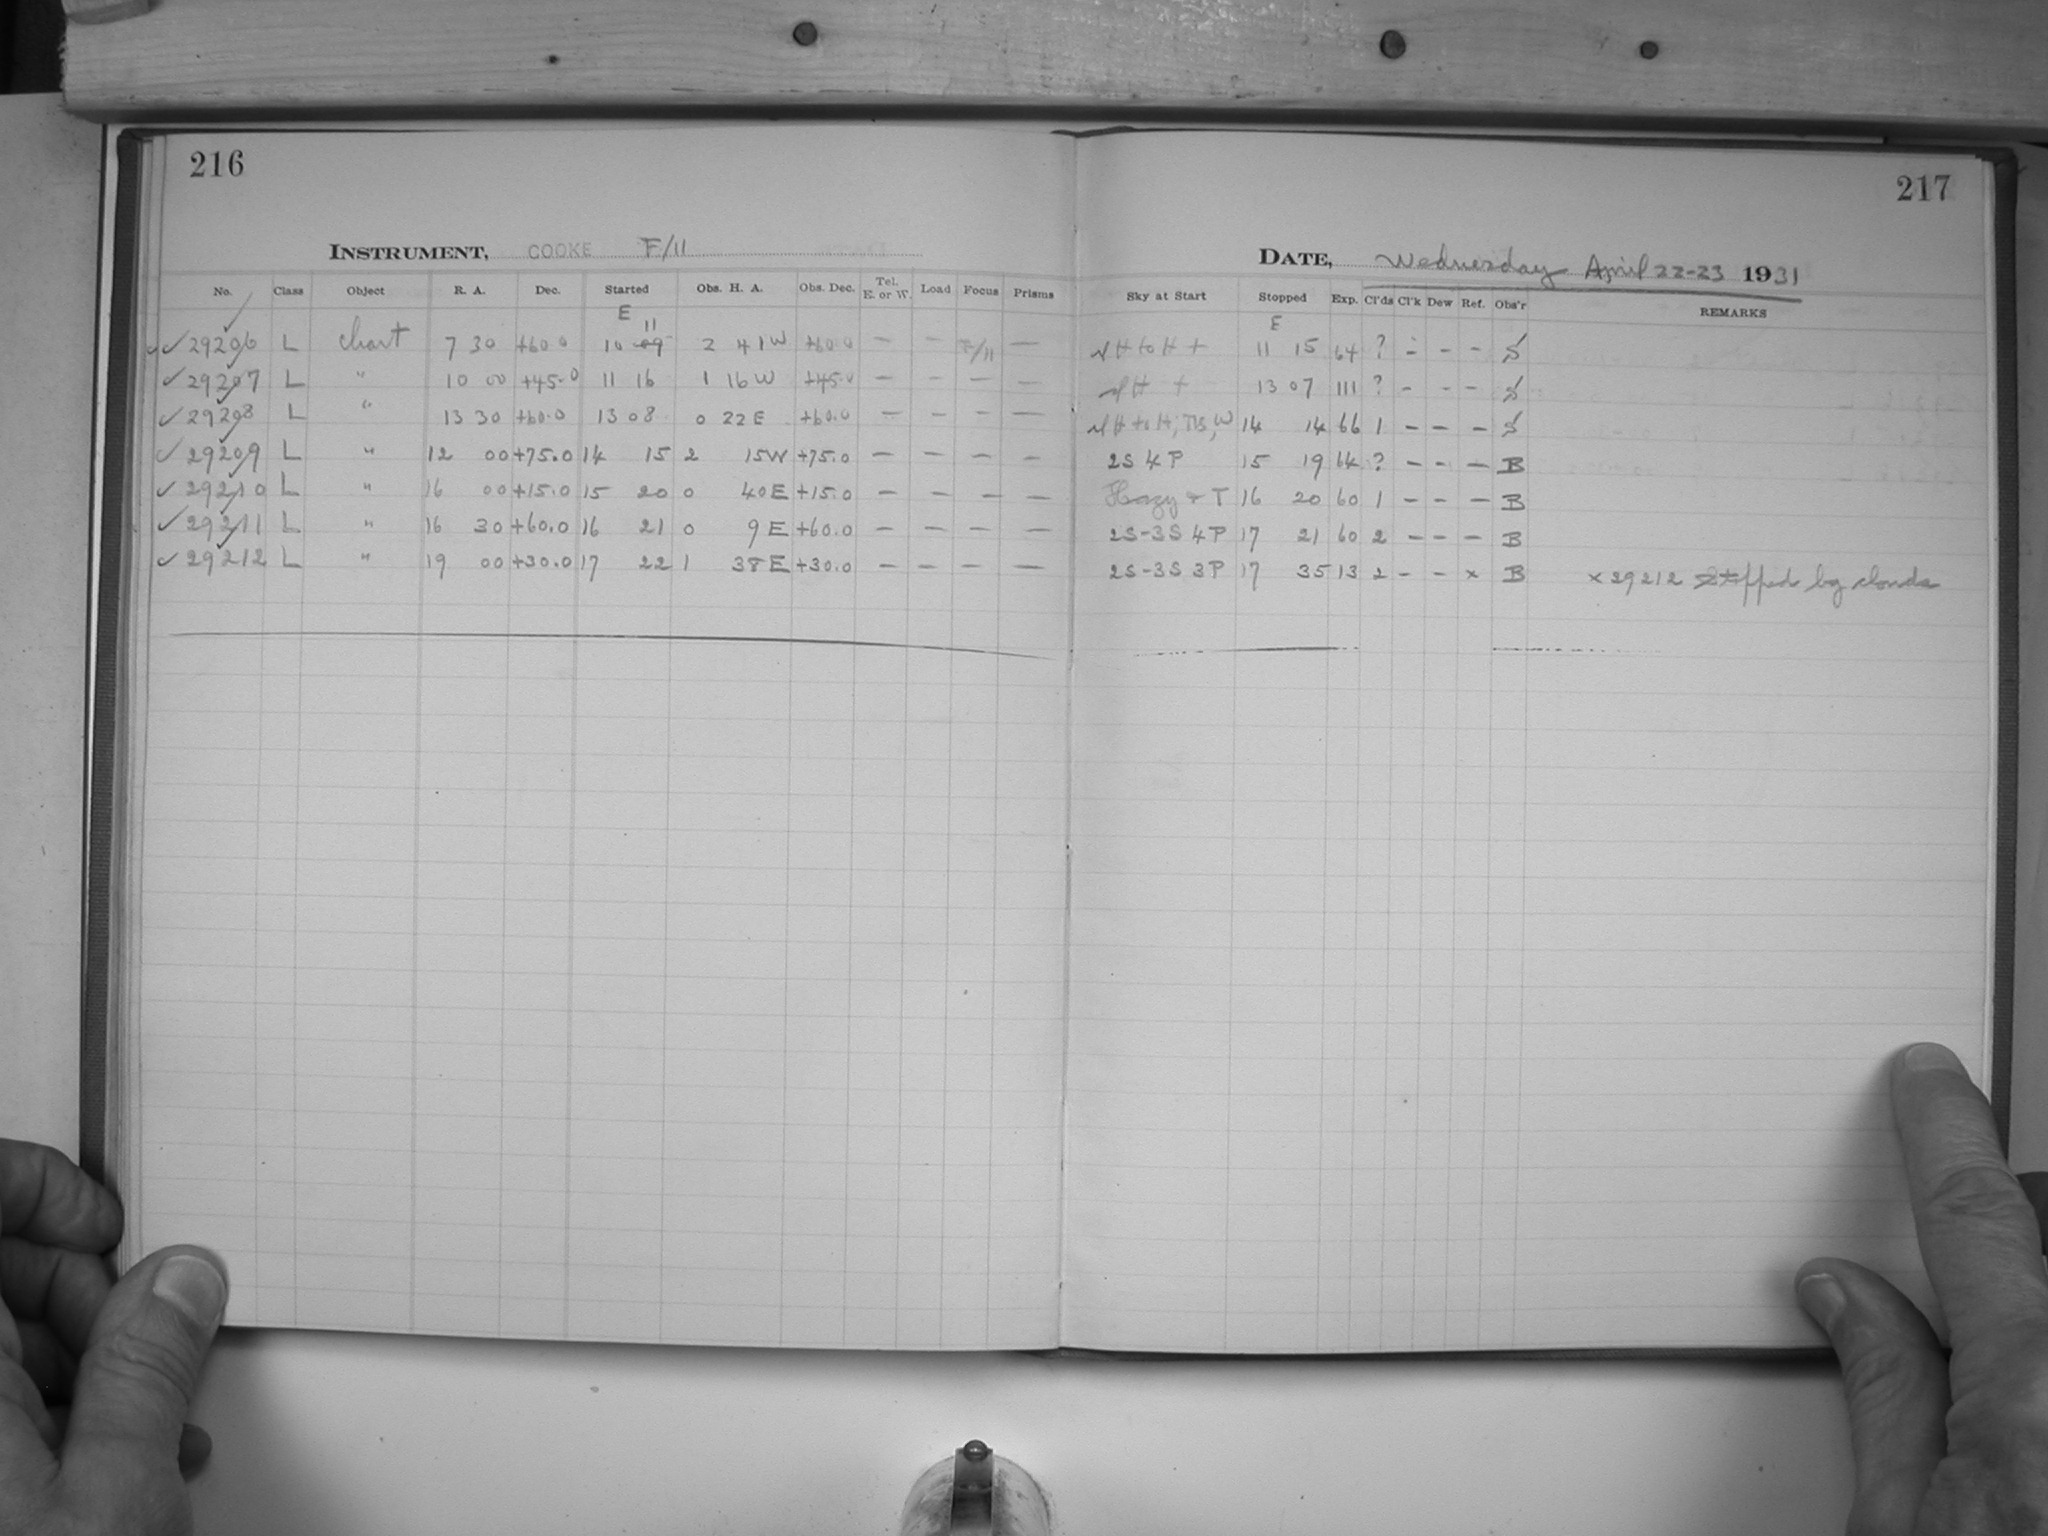 216
INSTRUMENT, COOKE F/11
No. Class Object R. A. Dec. Started Obs. H. A. Obs. Dec. Tel. E. or W. Load Focus Prisms
E
11
✓ ✓ 29206 L chart 7 30 +60.0 10 09 2 41 W +60.0 — — F/11 —
✓ 29207 L " 10 00 +45.0 11 16 1 16 W +45.0 — — — —
✓ 29208 L " 13 30 +60.0 13 08 0 22 E +60.0 — — — —
✓ 29209 L " 12 00 +75.0 14 15 2 15 W +75.0 — — — —
✓ 29210 L " 16 00 +15.0 15 20 0 40 E +15.0 — — — —
✓ 29211 L " 16 30 +60.0 16 21 0 9 E +60.0 — — — —
✓ 29212 L " 19 00 +30.0 17 22 1 38 E +30.0 — — — —
217
DATE, Wednesday April 22-23 1931
Sky at Start Stopped Exp. Cl'ds Cl'k Dew Ref. Obs'r REMARKS
E
H to H + 11 15 64 ? - - - S
H + 13 07 111 ? - - - S
H to H, W 14 14 66 1 - - - S
2S 4P 15 19 64 ? - - - B
Hazy + T 16 20 60 1 - - - B
2S-3S 4P 17 21 60 2 - - - B
2S-3S 3P 17 35 13 2 - - x B x 29212 stopped by clouds